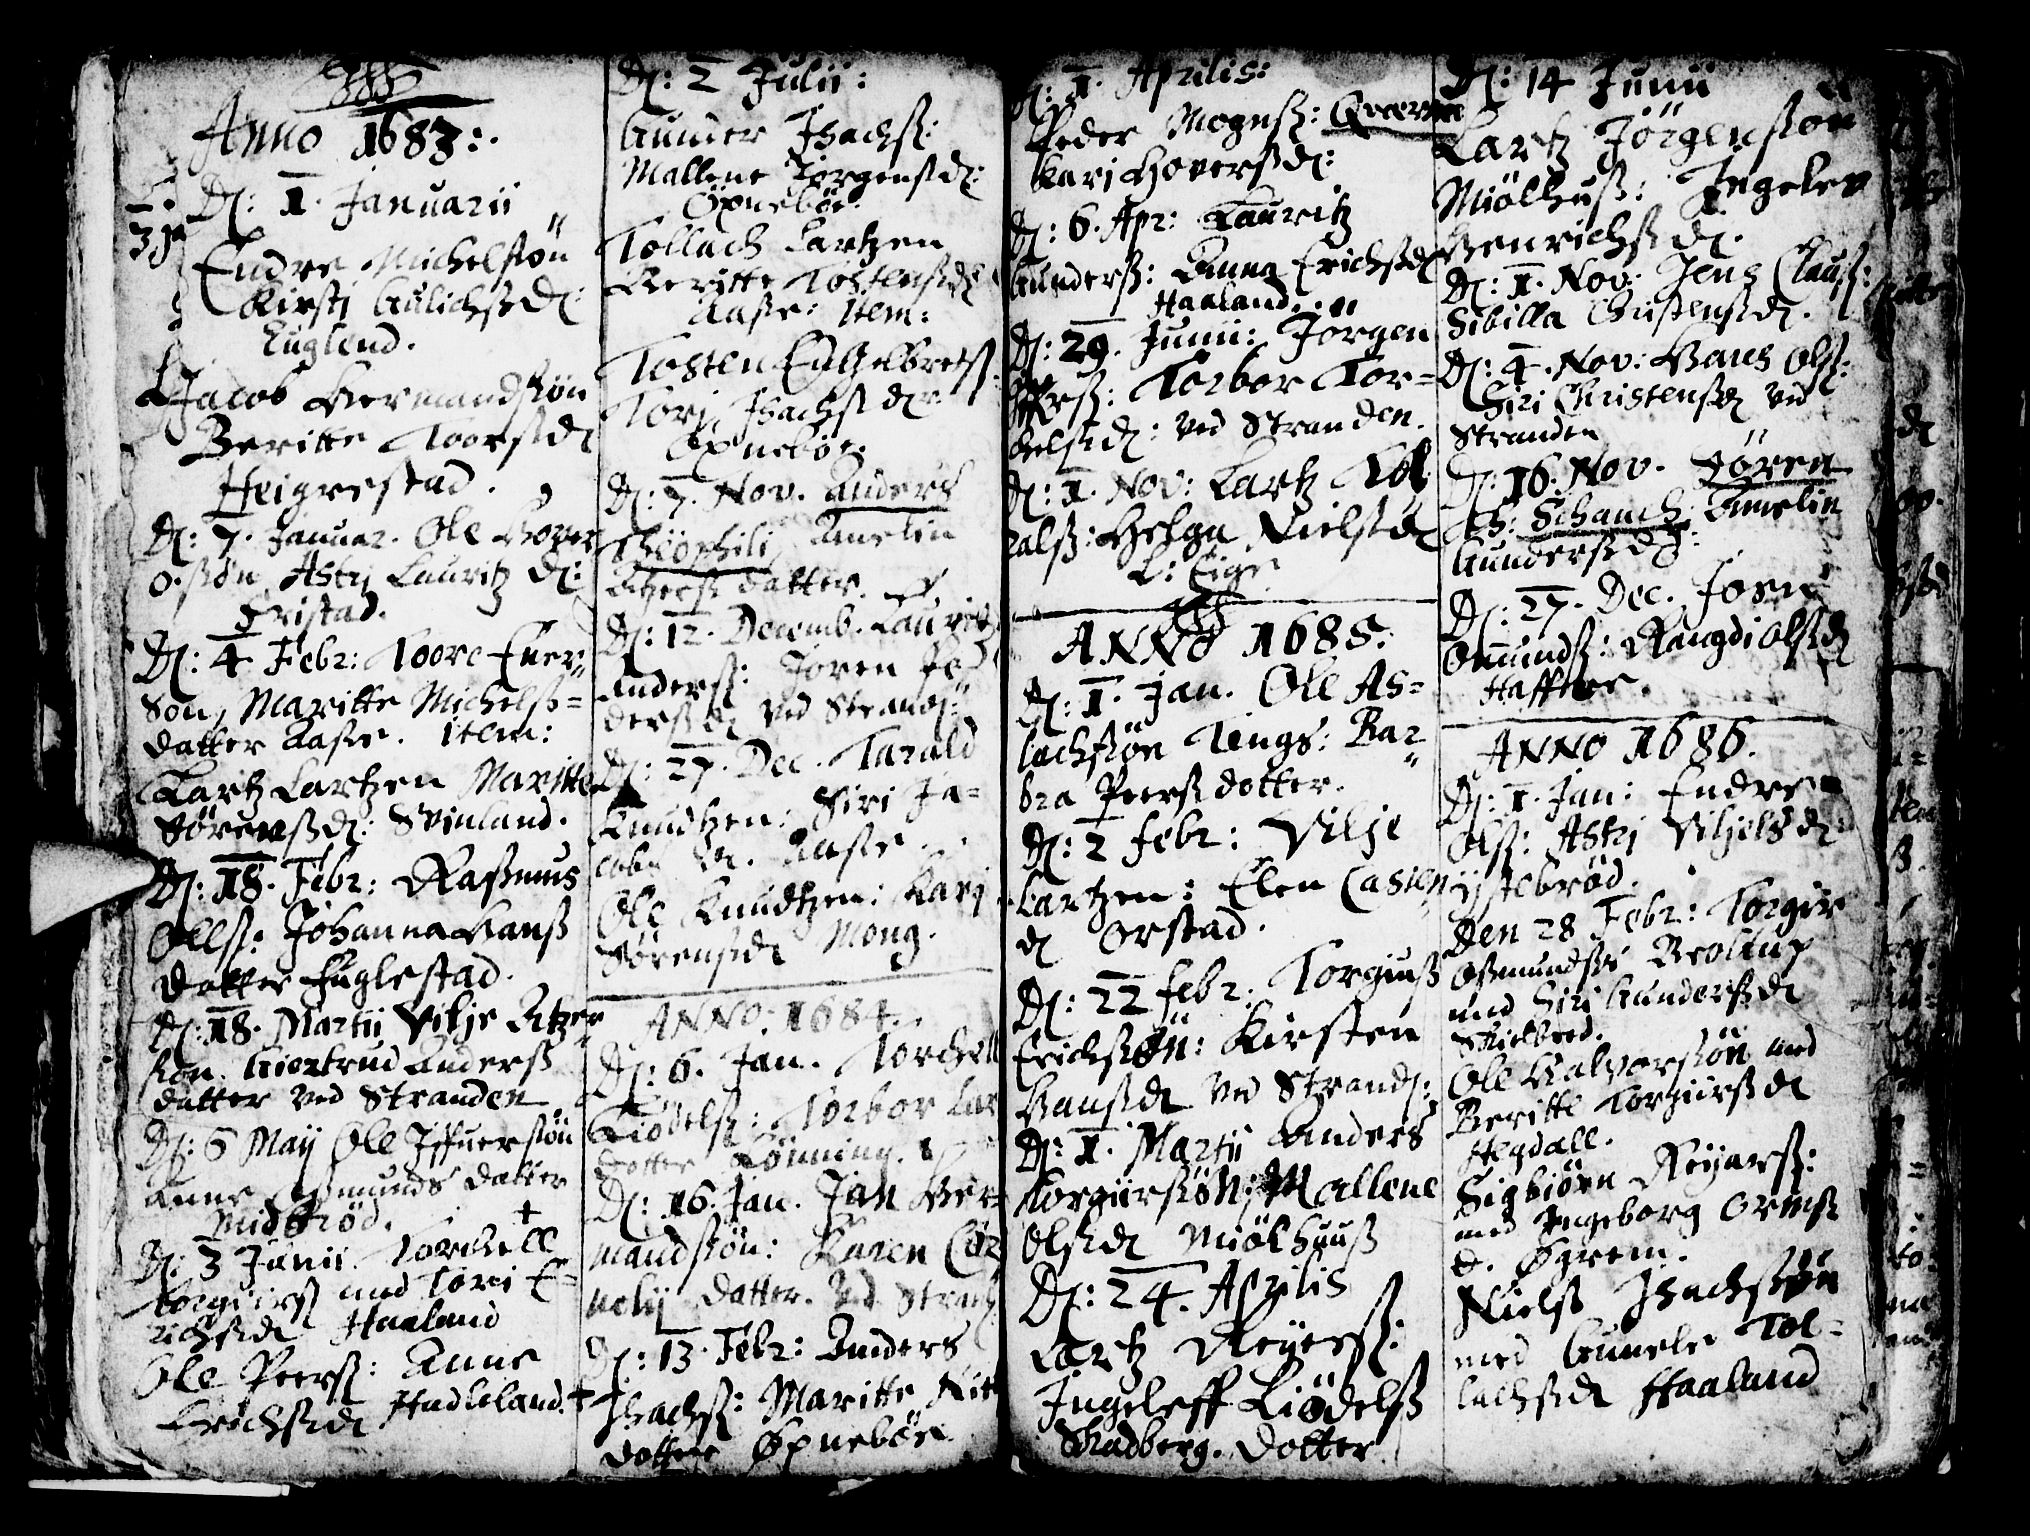 Anno 1683:.
D: 1. Januarii
Endre Michelsøn
Kirstj Gulichsd:
Euglend.
Jacob Hermandsøn
Beritte Toorsd
Heigrestad.
D: 7. Januar. Ole Hover
søn, Astrj Lauritz d:
Eristad.
D: 4 Febr: Toore Ener
Søn, Maritte Michelss=
datter Aase. item:
Lartz Lartzen Maritte
Sørensd: Svinland.
D: 18. Febr: Rasmus
Olls: Johanna Hanss
datter Englestad.
D: 18. Martii Vilje Atzer
søn. Giertrud Anderss
datter ved Stranden
D: 6 Maij Ole Iffuersøn
Anne Osmunds datter
Midbrød.
D: 3 Junii. Torchell
Torgiirs med Tori E=
richsd Haaland
Ole Peers: Anne
Erichsd Hadleland.
D: 2 Julii:
Gunder Isachs:
Mallene Jørgensd:
Øpnebøe.
Tollach Lartzen
Beritte Tostensd
Aase: item:
Tosten Engelbrets:
Torj Isachsd
Øpnebøe.
D: 7. Nov. Anders
Theophili Amelin
Atzers datter.
D: 12. Decemb. Lauritz
Anders: Joren Pe
dersd ved Strand:
D: 27. Dec. Tarald
Knudtzen: Siri Ja=
cobs d. Aase.
Ole Knudtzen: Karj
Sørensd Mong.
ANNO. 1684.
D: 6. Jan. Torchell
Liødels: Torbor Lar
dotter Lønning.
D: 16. Jan. Jan Her=
mandsøn: Karen Cor
nelij datter. Ved Strand
D: 13. Febr: Anders
Isachs: Maritte
dotter Øpnebøe.
D: 1. Aprilis:
Peder Mogns: Qværne
Karj Hoversd:
D: 6. Apr: Lauritz
Gunders: Anna Erichsd
Haaland.
D: 29. Junii: Jørgen
Torbor Tor=
kelsd: ved Stranden.
D: 1. Nov: Lartz Tol
ralss: Helga Nielsd
L: Eige
ANNO 1685.
D: 1. Jan. Ole As=
lachsøn Tengs: Bar=
bra Peers dotter.
D: 2 febr: Vilje
Lartzen: Elen Casten
d Orstad.
D: 22 febr: Torgiuss
Erichsøn: Kirsten
Hansd ved Strand:
D: 1. Martii Anders
Torgiirsøn: Mallene
Olsd Miølhuuss
D: 24. Aprilis
Lartz Reyers:
Ingeleff Liødelss
Skadberg. Dotter.
D: 14 Junii
Lartz Jørgensøn
Miølhuss: Ingelev
Henrichsd.
D: 1. Nov: Jens Clauss:
Sibilla Christensd.
D: 4. Nov: Hans Ols:
Siri Christensd ved
Stranden
D: 16. Nov. Søren
Schanch Amelin
Gundersd:
D: 27. Dec. Joen
Omunds: Rangdi Olsd
Haffsøe.
ANNO 1686.
D: 1. Jan: Endre
Ols: Astrj Viljels d
Ystebrød.
Den 28 Febr: Torgir
Osmunds
med Siri Gundersd
Skielbred.
Ole Halvorsøn med
Beritte Torgiirsd
Hegdall.
Sigbiørn Reijars:
med Ingeborg Orms
d. Øgrem.
Niels Isachsøn
med Gunele Tol=
lachsd Haaland